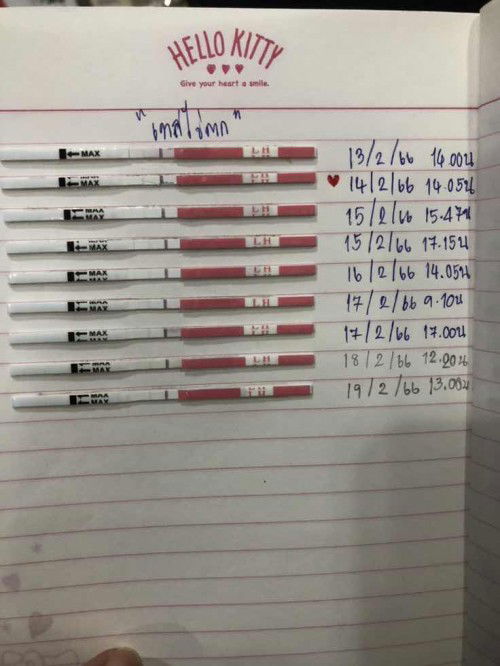 HELLO KITTY
Give your heart a smile.
"เทสไข่ตก"
MAX LH 13/2/66 14.00น
MAX LH 14/2/66 14.05น
MAX MAX LH 15/2/66 15.47น
MAX LH 15/2/66 17.15น
MAX LH 16/2/66 14.05น
MAX LH 17/2/66 9.10น
MAX LH 17/2/66 17.00น
MAX MAX LH 18/2/66 12.20น
MAX MAX LH 19/2/66 13.00น